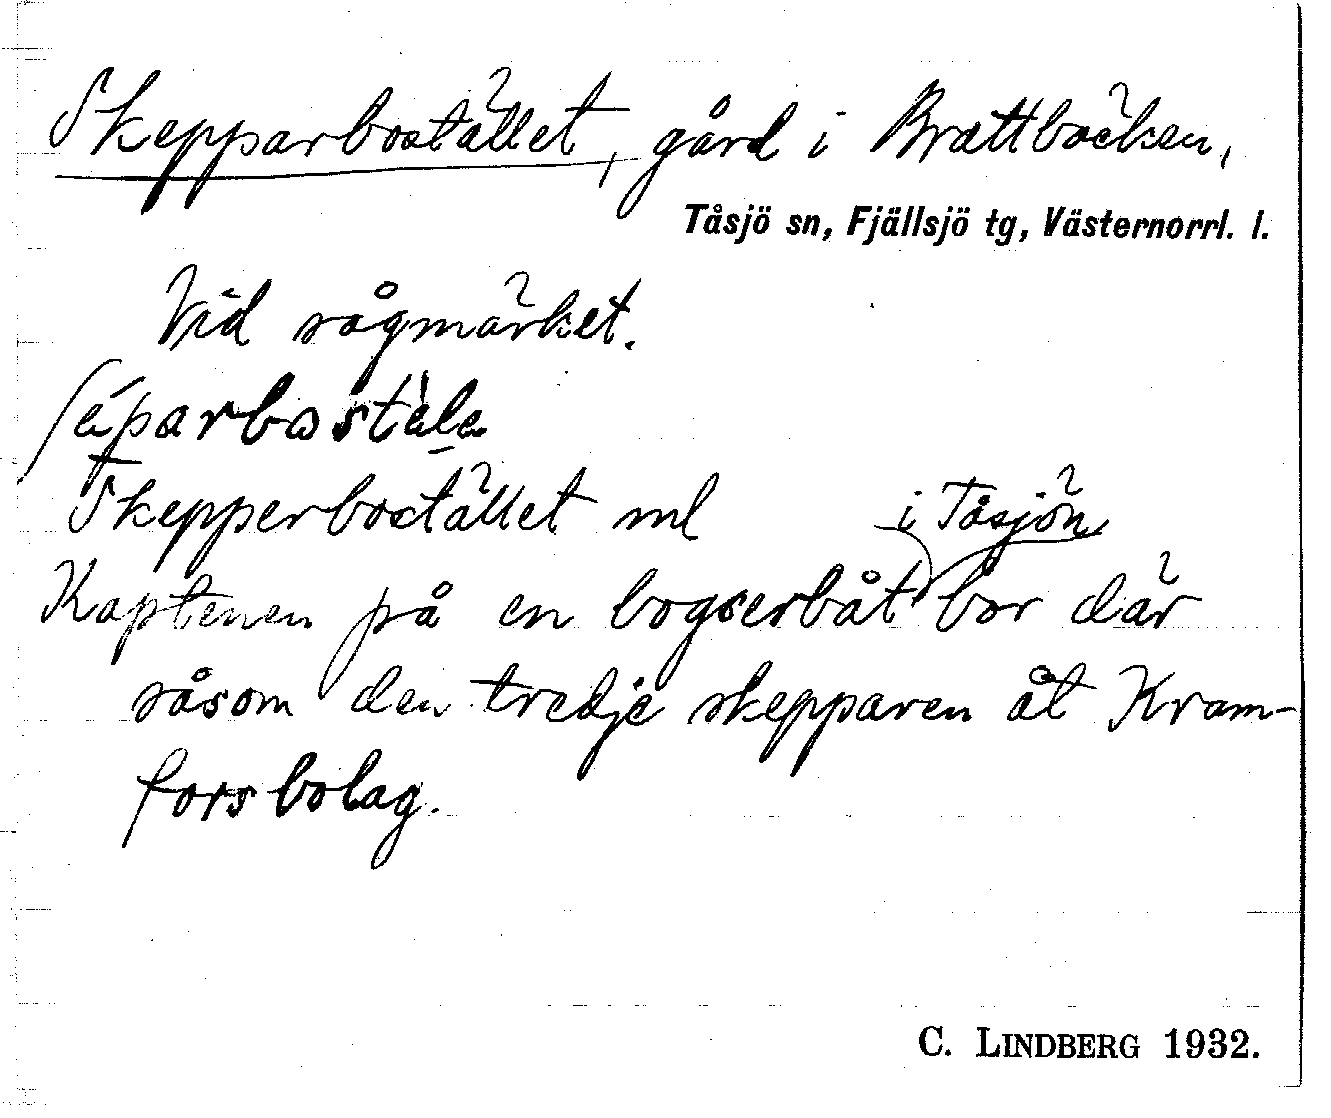 Skepparbostället, gård i Brattbäcken,
Tåsjö sn, Fjällsjö tg, Västernorrl. l.
Vid rågmärket.
Skepperbostället ml i Tåsjön
Kaptenen på en bogserbåt bor där
såsom den tredje skepparen åt Kram-
fors bolag.
C. LINDBERG 1932.